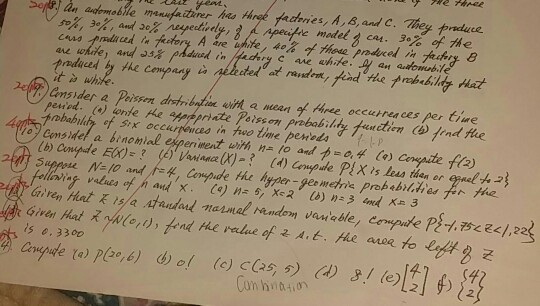 the last year.
20pts 8. An automobile manufacturer has three factories, A, B, and C. They produce
50%, 30%, and 20% respectively, of a specific model of car. 30% of the
cars produced in factory A are white, 40% of those produced in factory B
are white, and 25% produced in factory C are white. If an automobile
produced by the company is selected at random, find the probability that
it is white.
9. Consider a Poisson distribution with a mean of three occurrences per time
period. (a) write the appropriate Poisson probability function (b) find the
probability of six occurrences in two time periods
10. Consider a binomial experiment with n = 10 and p = 0.4 (a) compute f(2)
(b) Compute E(X) = ? (c) Variance(X) = ? (d) Compute P{X is less than or equal to 2}
Suppose N=10 and r=4, Compute the hyper-geometric probabilities for the
following values of n and x. (a) n= 5, x=2 (b) n=3 and x= 3
Given that Z is a standard normal random variable, compute P{-1.75<Z<1.22}
Given that Z ~ N(0,1), find the value of z s.t. the area to left of z
is 0.3300
Compute (a) P(20,6) (b) 0! (c) C(25, 5) (d) 8! (e) [4 2] (f) {4 2}
Combination